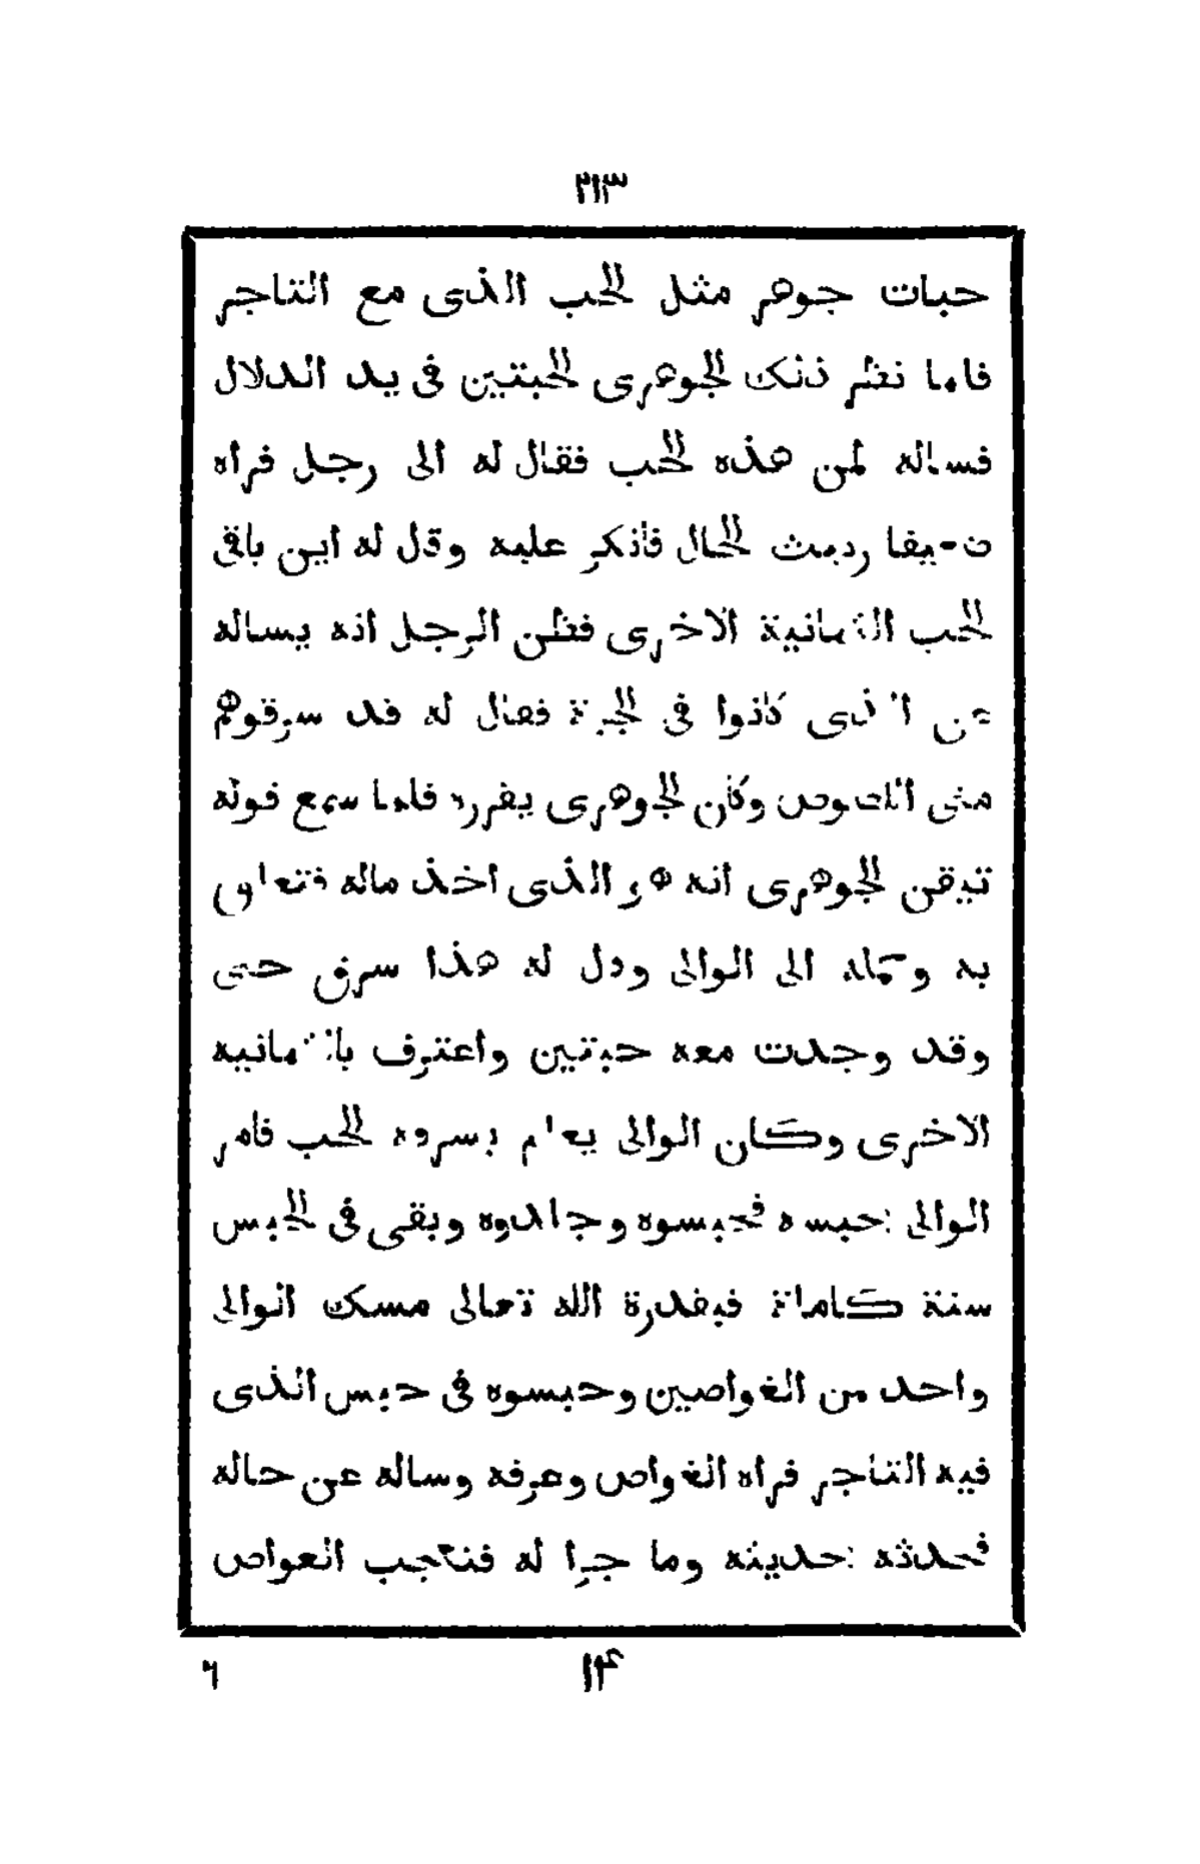 ٢١٣
حبات جوهر مثل الحب الذى مع التاجر
فلما نظر ذلك الجوهرى الحبتين فى يد الدلال
فساله لمن هذه الحب فقال له الى رجل فراه
ضعيفا رديث الحال فانكر عليه وقال له اين باقى
الحب الثمانية الاخرى فظن الرجل انه يساله
عن الذى كانوا فى الجبة فقال له قد سرقوهم
منى اللصوص وكان الجوهرى يقرره فلما سمع قوله
تيقن الجوهرى انه هو الذى اخذ ماله فتعلق
به وحمله الى الوالى وقال له هذا سرق حبى
وقد وجدت معه حبتين واعترف بالثمانية
الاخرى وكان الوالى يعلم بسروه الحب فامر
الوالى بحبسه فحبسوه وجلدوه وبقى فى الحبس
سنة كاملة فبقدرة الله تعالى مسك الوالى
واحد من الغواصين وحبسوه فى حبس الذى
فيه التاجر فراه الغواص وعرفه وساله عن حاله
فحدثه بحديثه وما جرا له فتعجب الغواص
١۴
٦